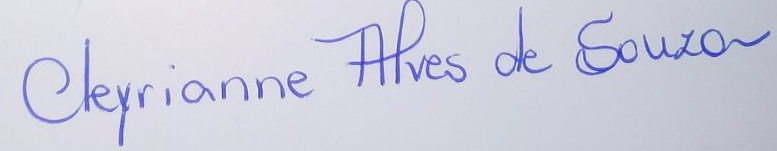 Cleyrianne Alves de Souza